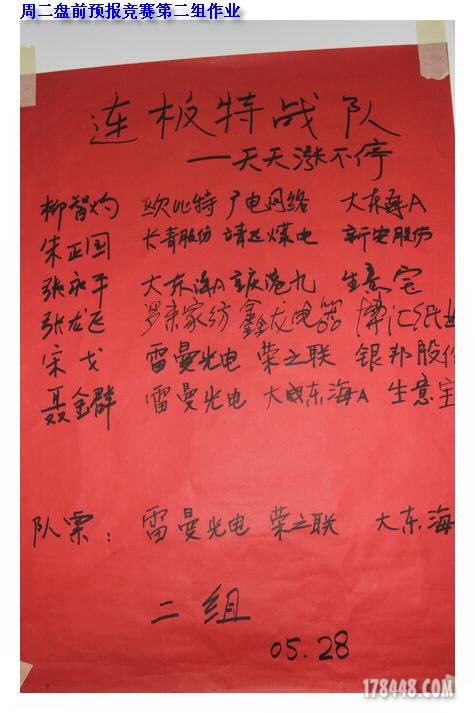 周二盘前预报竞赛第二组作业
连板特战队
——天天涨不停
柳智灼 欧比特 广电网络 大东海A
朱正国 长青股份 靖远煤电 新安股份
张永平 大东海A 重庆港九 生意宝
张龙飞 罗莱家纺 鑫龙电器 博汇纸业
宋戈 雷曼光电 荣之联 银邦股份
聂金群 雷曼光电 大东海A 生意宝
队票: 雷曼光电 荣之联 大东海
二组
05.28
178448.COM